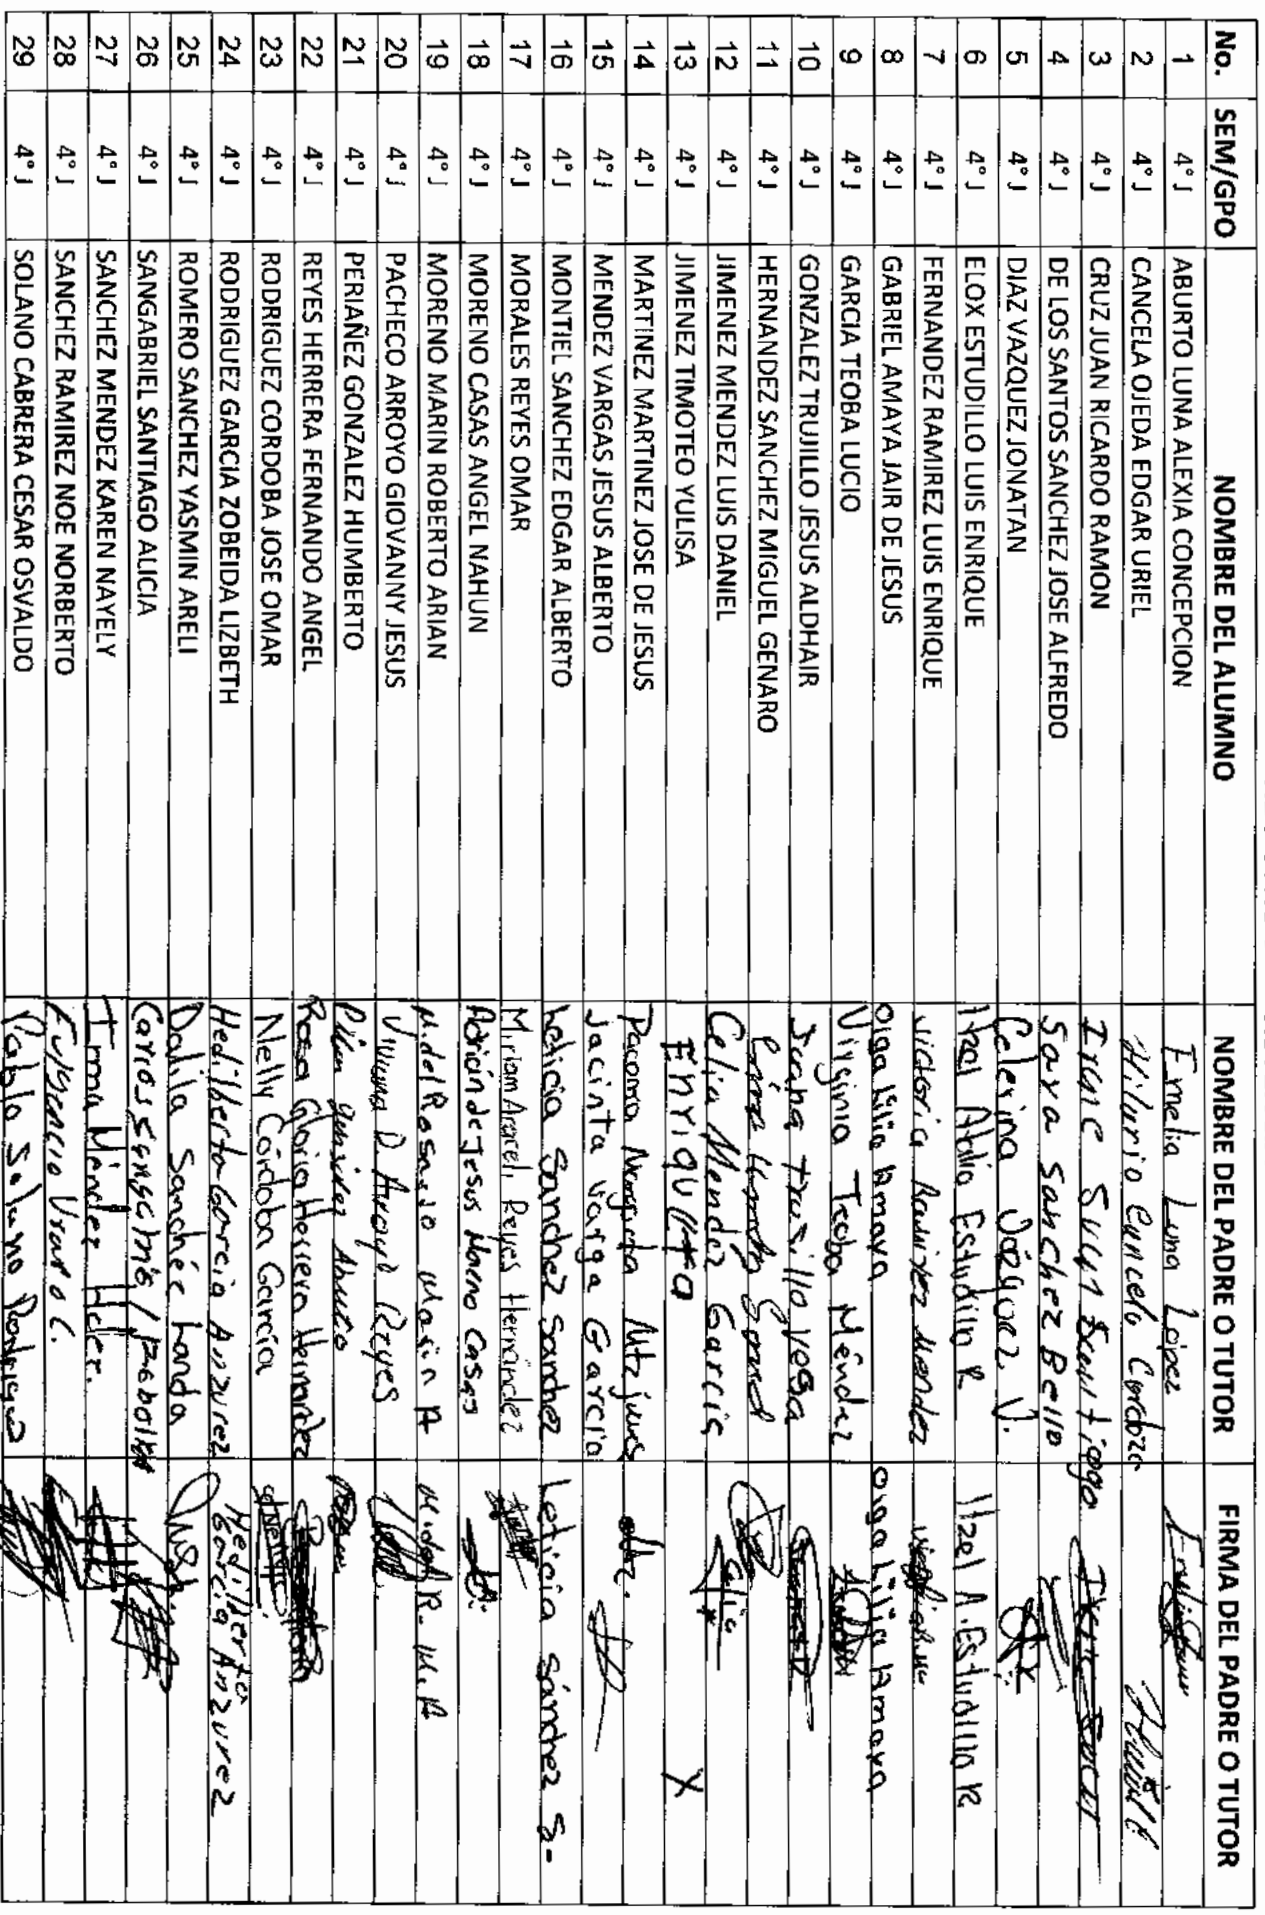 No. SEM/GPO NOMBRE DEL ALUMNO NOMBRE DEL PADRE O TUTOR FIRMA DEL PADRE O TUTOR
1 4° J ABURTO LUNA ALEXIA CONCEPCION Emelia Luna López
2 4° J CANCELA OJEDA EDGAR URIEL Hilario Cancela Cordoza
3 4° J CRUZ JUAN RICARDO RAMON Irene Juan Santiago
4 4° J DE LOS SANTOS SANCHEZ JOSE ALFREDO Sara Sanchez Bello
5 4° J DIAZ VAZQUEZ JONATAN Celerina Vázquez V.
6 4° J ELOX ESTUDILLO LUIS ENRIQUE Itzel Estudillo R Itzel A. Estudillo R
7 4° J FERNANDEZ RAMIREZ LUIS ENRIQUE Victoria Ramirez Mendez
8 4° J GABRIEL AMAYA JAIR DE JESUS Olga Lilia Amaya Olga Lilia Amaya
9 4° J GARCIA TEOBA LUCIO Virginia Teoba Méndez
10 4° J GONZALEZ TRUJILLO JESUS ALDHAIR Juana Trujillo Vega
11 4° J HERNANDEZ SANCHEZ MIGUEL GENARO
12 4° J JIMENEZ MENDEZ LUIS DANIEL Celia Mendéz Garcis Celia
13 4° J JIMENEZ TIMOTEO YULISA X
14 4° J MARTINEZ MARTINEZ JOSE DE JESUS Mtz
15 4° J MENDEZ VARGAS JESUS ALBERTO Jacinta Varga García
16 4° J MONTIEL SANCHEZ EDGAR ALBERTO Leticia Sanchez Sanchez Leticia Sánchez S-
17 4° J MORALES REYES OMAR Miriam Araceli Reyes Hernández
18 4° J MORENO CASAS ANGEL NAHUN de Jesus Moreno Casas
19 4° J MORENO MARIN ROBERTO ARIAN M. del Rosario Marin A M. del R. M. A
20 4° J PACHECO ARROYO GIOVANNY JESUS Reyes
21 4° J PERIAÑEZ GONZALEZ HUMBERTO
22 4° J REYES HERRERA FERNANDO ANGEL Rosa Gloria Herrera Hernandez
23 4° J RODRIGUEZ CORDOBA JOSE OMAR Nelly Córdoba García
24 4° J RODRIGUEZ GARCIA ZOBEIDA LIZBETH Hedilberto Garcia Anzurez Hedilberto Garcia Anzurez
25 4° J ROMERO SANCHEZ YASMIN ARELI Dalila Sanchéz Landa
26 4° J SANGABRIEL SANTIAGO ALICIA Carlos
27 4° J SANCHEZ MENDEZ KAREN NAYELY Irma Méndez Hdez.
28 4° J SANCHEZ RAMIREZ NOE NORBERTO Fulgencio
29 4° J SOLANO CABRERA CESAR OSVALDO Pablo Solano Rodriguez